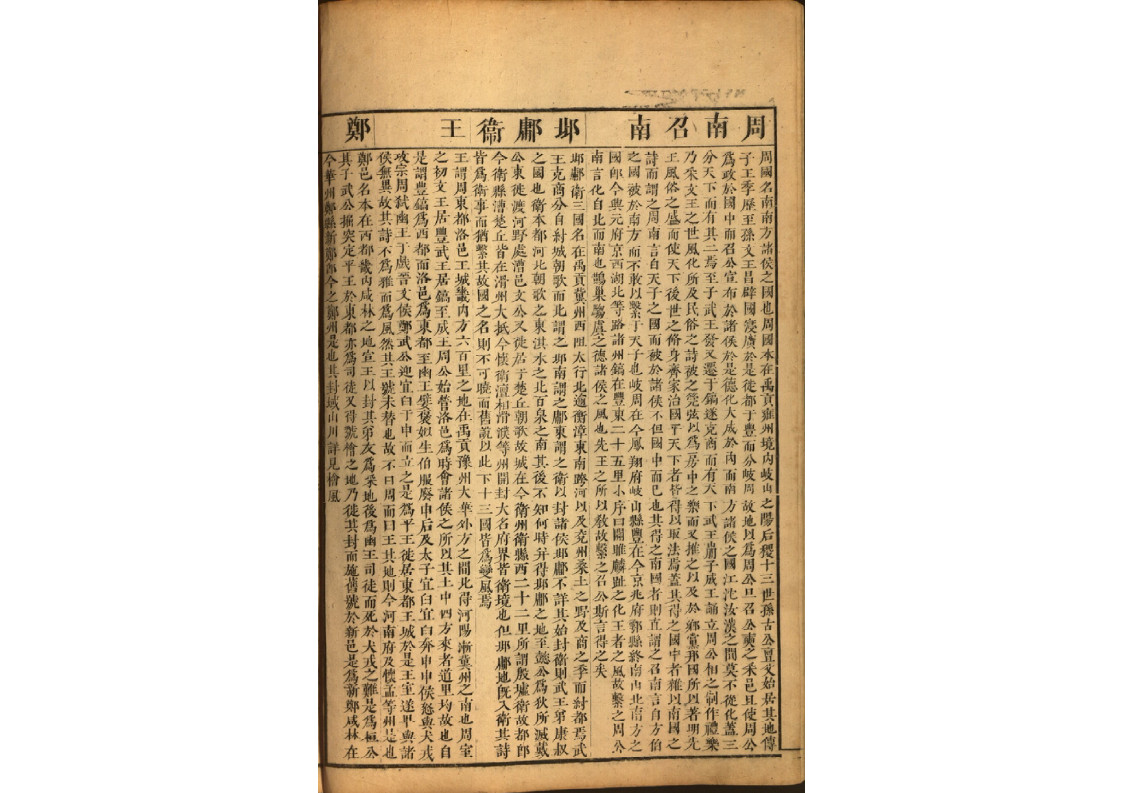 周南召南　邶鄘衞　王　鄭
周國名南南方諸侯之國也周國本在禹貢雍州境內岐山之陽后稷十三世孫古公亶父始居其地傳
子王季歷至孫文王昌辟國寖廣於是徙都于豐而分岐周故地以爲周公旦召公奭之采邑且使周公
爲政於國中而召公宣布於諸侯於是德化大成於內而南方諸侯之國江沱汝漢之間莫不從化蓋三
分天下而有其二焉至子武王發又遷于鎬遂克商而有天下武王崩子成王誦立周公相之制作禮樂
乃采文王之世風化所及民俗之詩被之筦弦以爲房中之樂而又推之以及於鄉黨邦國所以著明先
王風俗之盛而使天下後世之脩身齊家治國平天下者皆得以取法焉蓋其得之國中者雜以南國之
詩而謂之周南言自天子之國而被於諸侯不但國中而已也其得之南國者則直謂之召南言自方伯
之國被於南方而不敢以繫于天子也岐周在今鳳翔府岐山縣豐在今京兆府鄠縣終南山北南方之
國卽今興元府京西湖北等路諸州鎬在豐東二十五里小序曰關雎麟趾之化王者之風故繫之周公
南言化自北而南也鵲巢騶虞之德諸侯之風也先王之所以敎故繫之召公斯言得之矣
邶鄘衞三國名在禹貢冀州西阻太行北逾衡漳東南跨河以及兗州桑土之野及商之季而紂都焉武
王克商分自紂城朝歌而北謂之邶南謂之鄘東謂之衞以封諸侯邶鄘不詳其始封衞則武王弟康叔
之國也衞本都河北朝歌之東淇水之北百泉之南其後不知何時幷得邶鄘之地至懿公爲狄所滅戴
公東徙渡河野處漕邑文公又徙居于楚丘朝歌故城在今衞州衞縣西二十二里所謂殷墟衞故都卽
今衞縣漕楚丘皆在滑州大抵今懷衞澶相滑濮等州開封大名府界皆衞境也但邶鄘地旣入衞其詩
皆爲衞事而猶繫其故國之名則不可曉而舊說以此下十三國皆爲變風焉
王謂周東都洛邑王城畿內方六百里之地在禹貢豫州大華外方之間北得河陽漸冀州之南也周室
之初文王居豐武王居鎬至成王周公始營洛邑爲時會諸侯之所以其土中四方來者道里均故也自
是謂豐鎬爲西都而洛邑爲東都至幽王嬖褒姒生伯服廢申后及太子宜臼宜臼奔申申侯怒與犬戎
攻宗周弒幽王于戲晉文侯鄭武公迎宜臼于申而立之是爲平王徙居東都王城於是王室遂卑與諸
侯無異故其詩不爲雅而爲風然其王號未替也故不曰周而曰王其地則今河南府及懷孟等州是也
鄭邑名本在西都畿內咸林之地宣王以封其弟友爲采地後爲幽王司徒而死於犬戎之難是爲桓公
其子武公掘突定平王於東都亦爲司徒又得虢檜之地乃徙其封而施舊號於新邑是爲新鄭咸林在
今華州鄭縣新鄭卽今之鄭州是也其封域山川詳見檜風